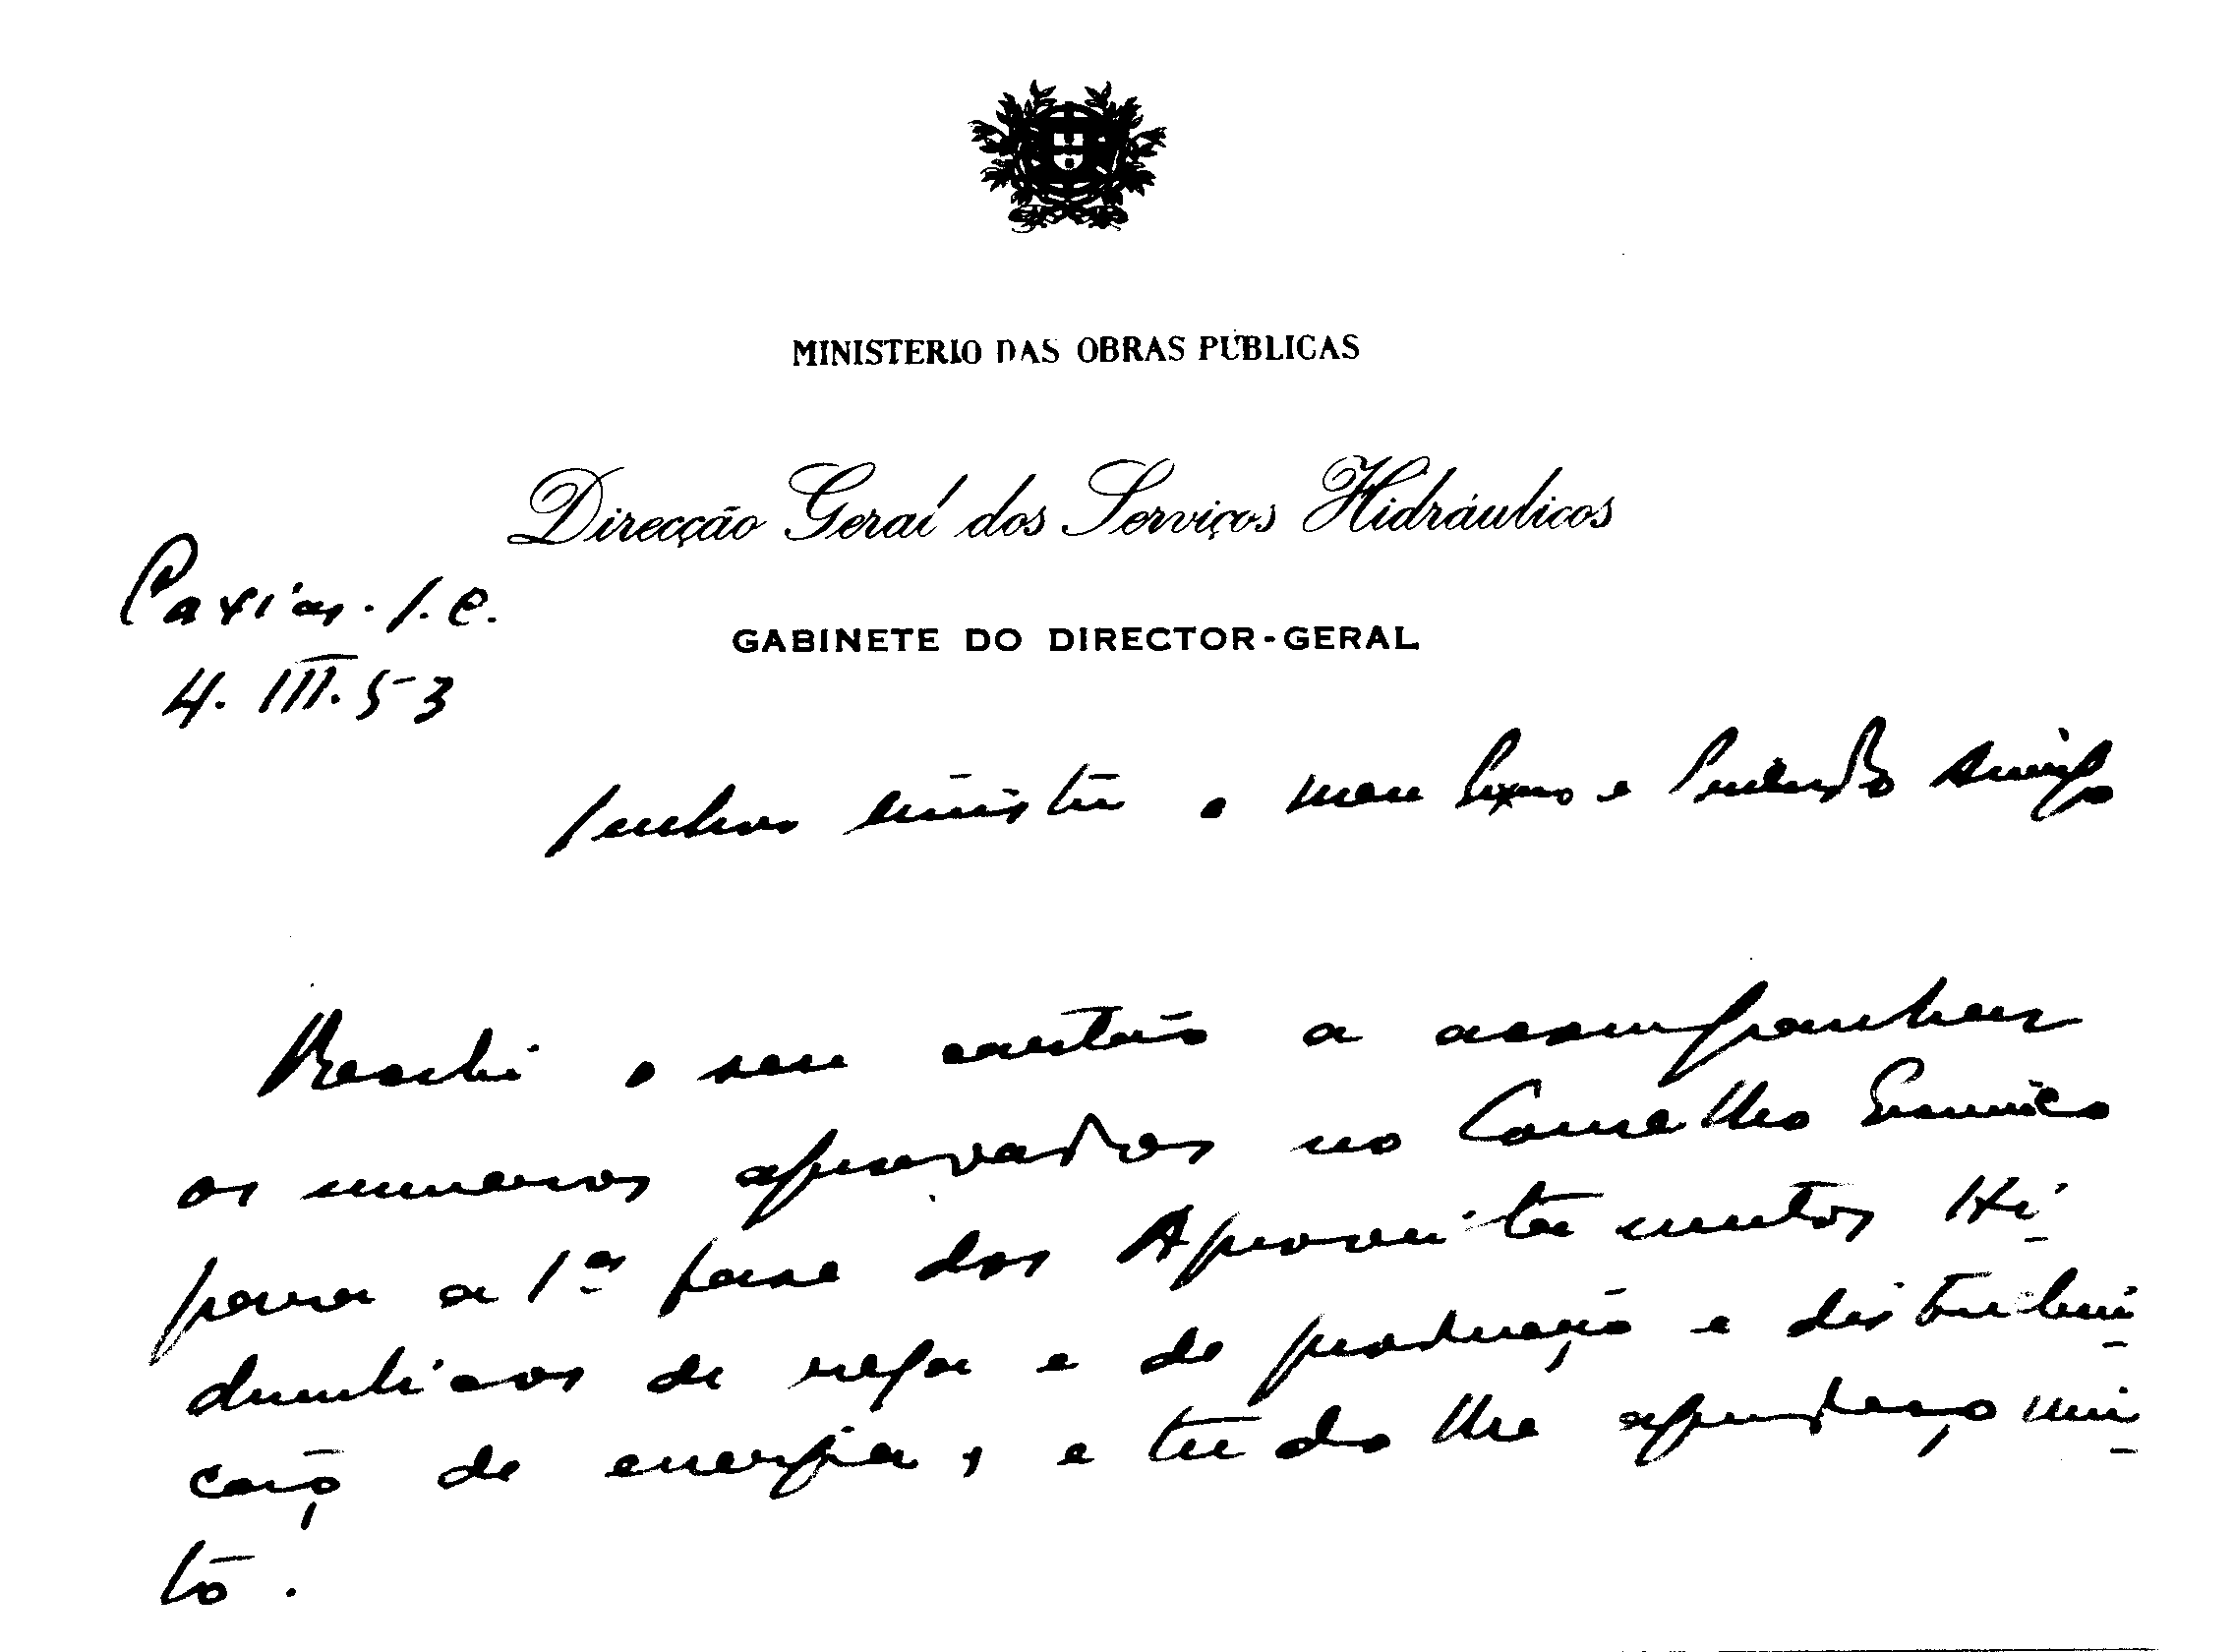 MINISTERIO DAS OBRAS PÚBLICAS
Direcção Geral dos Serviços Hidráulicos
Caxias. S.C.
GABINETE DO DIRECTOR-GERAL
4. III. 53
Senhor Ministro e meu Exmo e Amigo
Recebi o seu cartão a acompanhar
os numeros aprovados no Conselho Económico
para a 1ª fase dos Aproveitamentos Hi-
draulicos de rega e de produção e distribui-
ção de energia, e tudo lhe agradeço mui-
to.